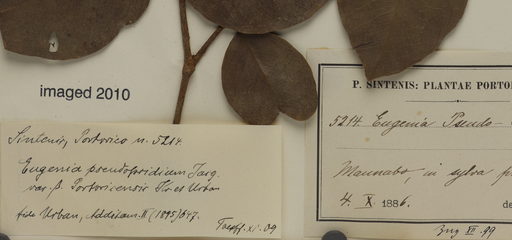 imaged 2010
Sintenis, Portorico n. 5214.
Eugenia pseudopsidium Jacq.
var. β. Portoricensis Kr. et Urban
fide Urban, Additam. II (1895) 647.
XI. 09
P. SINTENIS: PLANTAE PORTO
5214. Eugenia Pseudo-
Maunabo, in sylva
4. X 1886.
de
Zug VII. 99